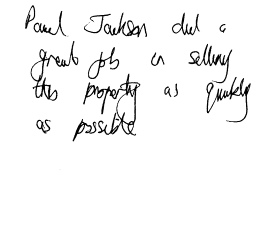 Paul Jackson did a
great job in selling
this property as quickly
as possible